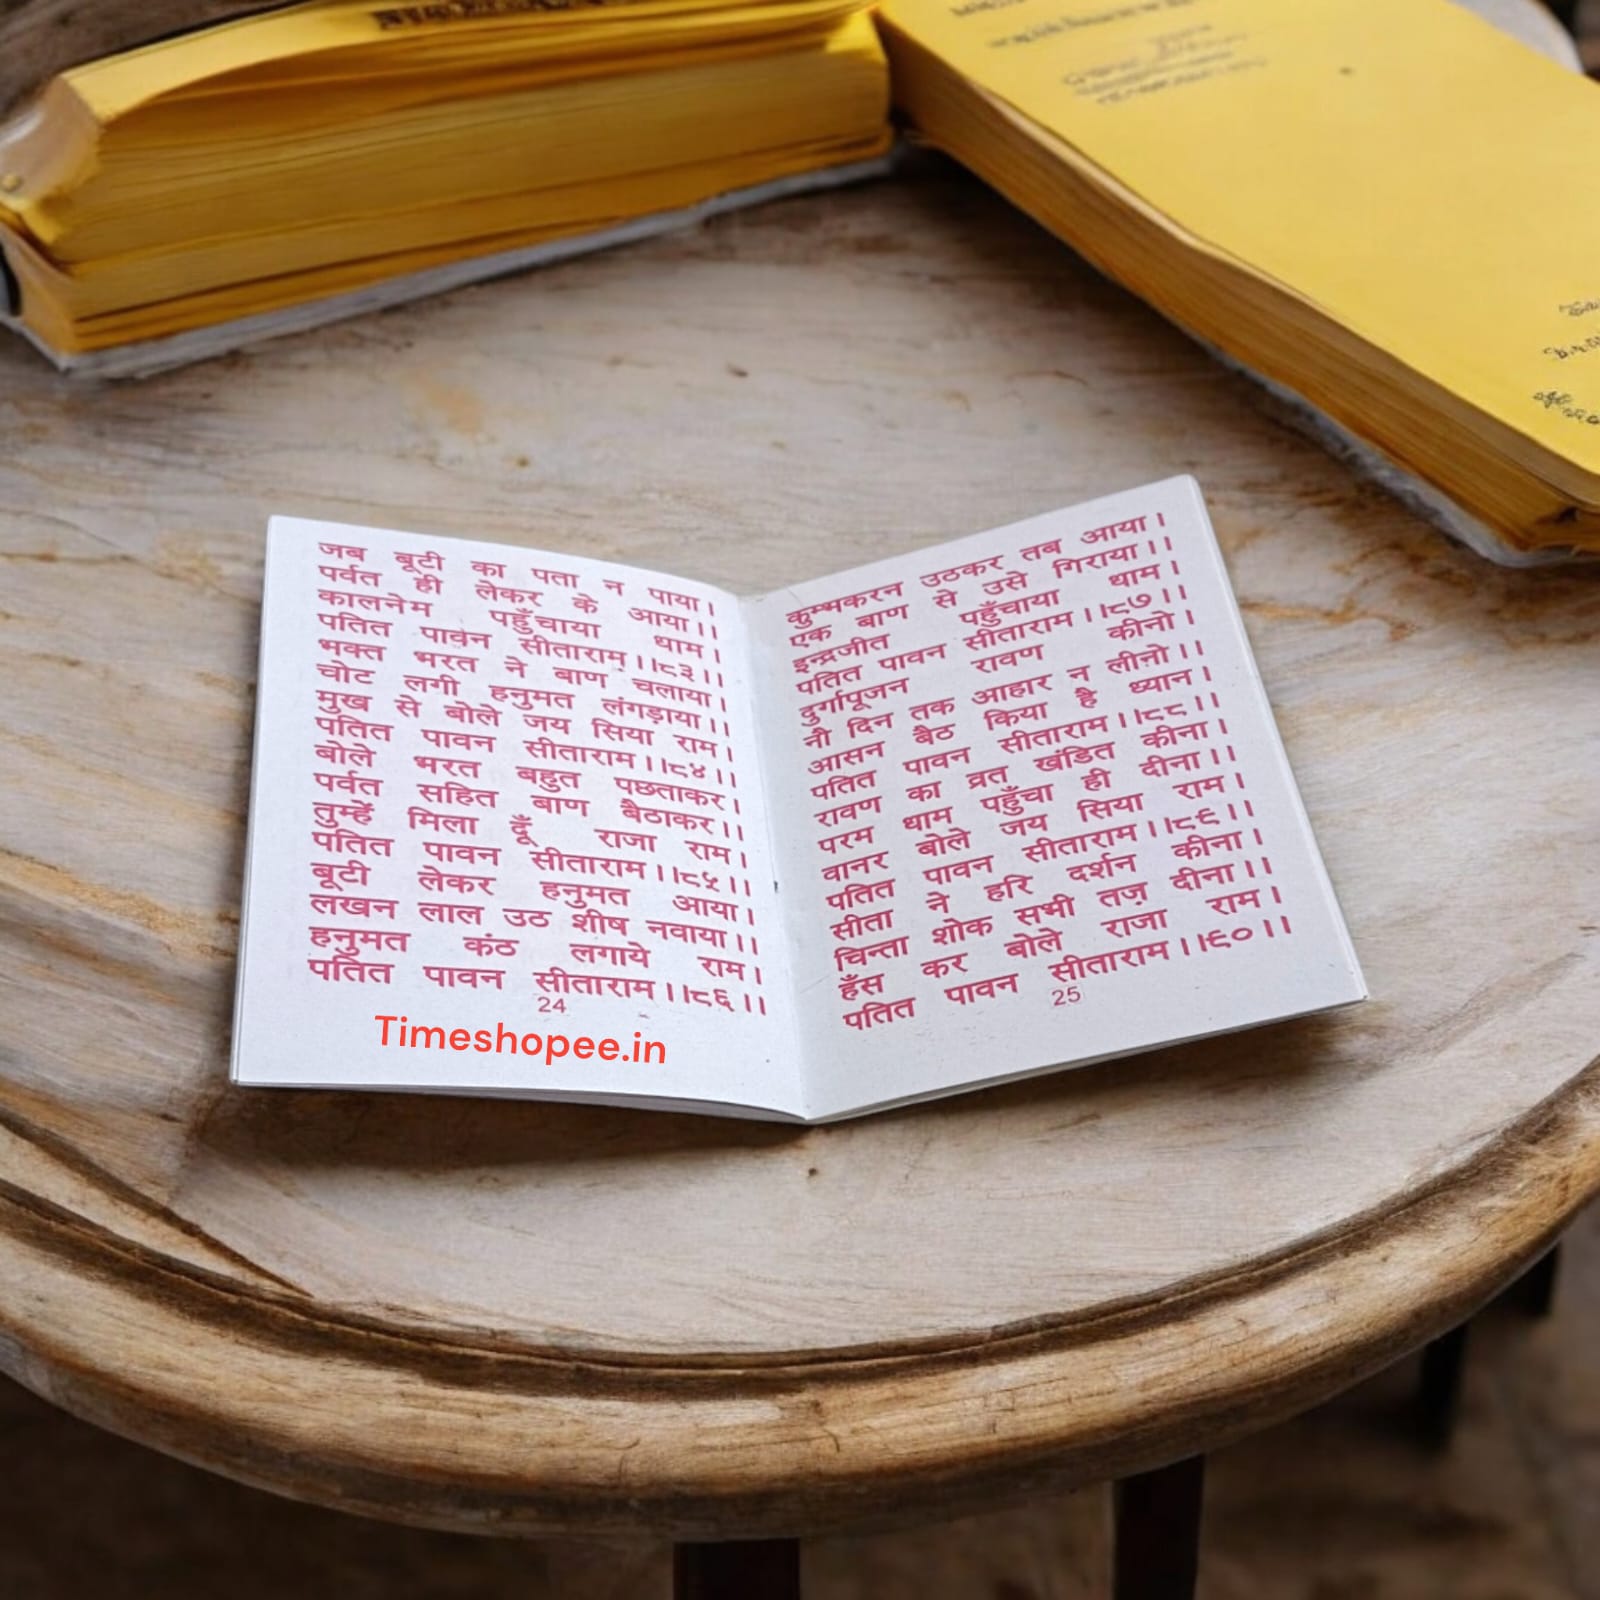 जब बूटी का पता न पाया।
पर्वत ही लेकर के आया।।
कालनेम पहुँचाया धाम।
पतित पावन सीताराम।।८३।।
भक्त भरत ने बाण चलाया।
चोट लगी हनुमत लंगड़ाया।।
मुख से बोले जय सिया राम।
पतित पावन सीताराम।।८४।।
बोले भरत बहुत पछताकर।
पर्वत सहित बाण बैठाकर।।
तुम्हें मिला दूँ राजा राम।
पतित पावन सीताराम।।८५।।
बूटी लेकर हनुमत आया।
लखन लाल उठ शीष नवाया।।
हनुमत कंठ लगाये राम।
पतित पावन सीताराम।।८६।।
24
Timeshopee.in
कुम्भकरन उठकर तब आया।
एक बाण से उसे गिराया।।
इन्द्रजीत पहुँचाया धाम।
पतित पावन सीताराम।।८७।।
दुर्गापूजन रावण कीनो।
नौ दिन तक आहार न लीनो।।
आसन बैठ किया है ध्यान।
पतित पावन सीताराम।।८८।।
रावण का व्रत खंडित कीना।
परम धाम पहुँचा ही दीना।।
वानर बोले जय सिया राम।
पतित पावन सीताराम।।८९।।
सीता ने हरि दर्शन कीना।
चिन्ता शोक सभी तज़ दीना।।
हँस कर बोले राजा राम।
पतित पावन सीताराम।।९०।।
25